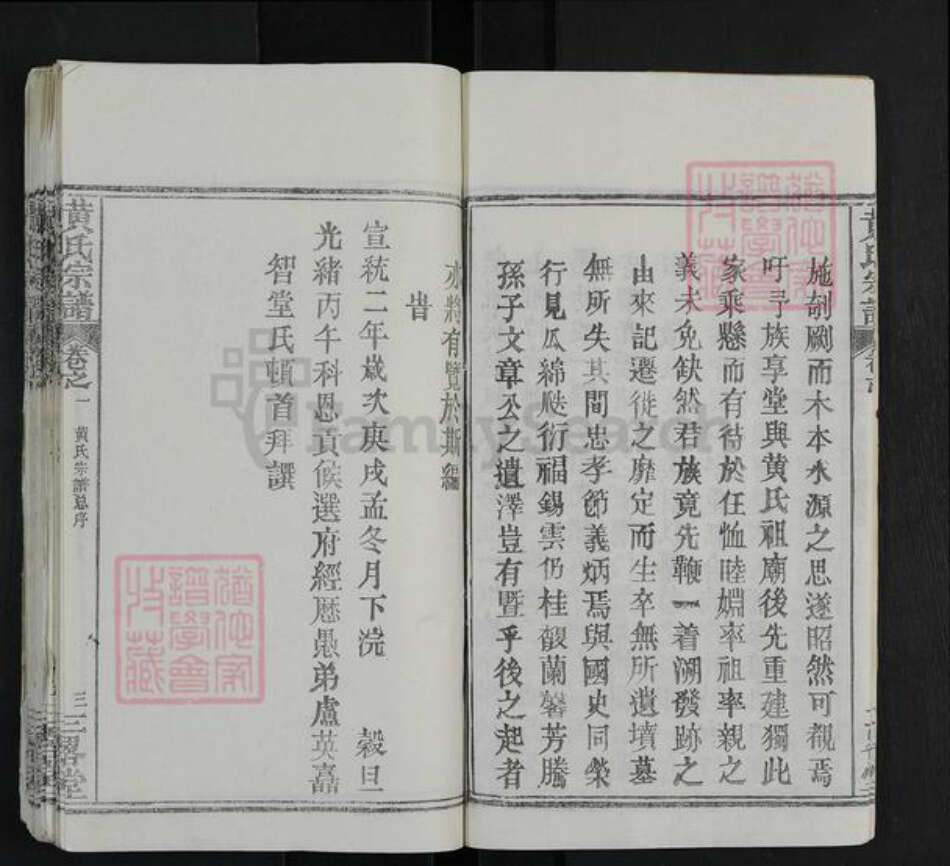 施剞劂而木本水源之思遂昭然可覩焉
吁予族享堂與黄氏祖廟後先重建獨此
家乘懸而有待於任恤睦婣率祖率親之
義未免缺然君族竟先鞭一着溯發跡之
由來記遷徙之靡定而生卒無所遺墳墓
無所失其間忠孝節義炳焉與國史同榮
行見瓜綿瓞衍福錫雲仍桂馥蘭馨芳騰
孫子文章公之遺澤豈有暨乎後之起者
亦將有覽於斯編
旹
宣統二年歲次庚戌孟冬月下浣 穀旦
光緒丙午科恩貢候選府經歷愚弟盧英
智堂氏頓首拜譔
黃氏宗譜
卷之一
黃氏宗譜總序
三
黃氏宗譜
譜學會
收藏
FamilySearch